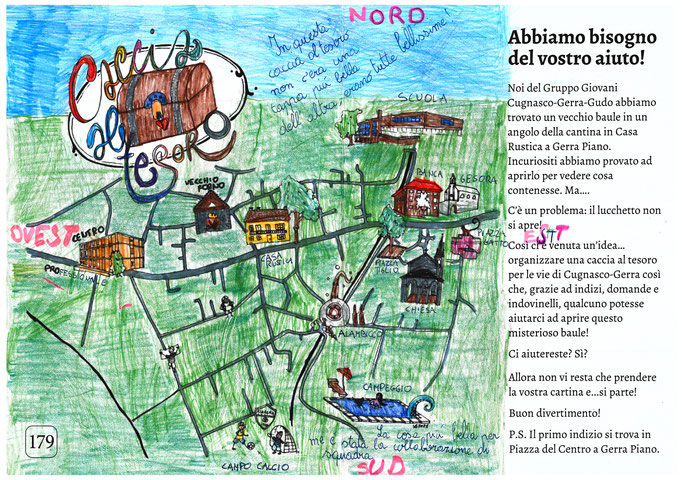 NORD
In questa
caccia al tesoro
non c'era una
tappa più bella
dell'altra, erano tutte bellissime!
Caccia
al
tesoro
SCUOLA
VECCHIO
FORNO
BANCA
GESORA
OVEST
CENTRO
PROFESSIONALE
CASA
RUSTICA
PIAZZA
TIGLIO
PIAZZA
GATTO
EST
CHIESA
ALAMBICCO
CAMPEGGIO
CAMPO CALCIO
La cosa più bella per
me è stata la collaborazione di
squadra
SUD
179
Abbiamo bisogno
del vostro aiuto!
Noi del Gruppo Giovani
Cugnasco-Gerra-Gudo abbiamo
trovato un vecchio baule in un
angolo della cantina in Casa
Rustica a Gerra Piano.
Incuriositi abbiamo provato ad
aprirlo per vedere cosa
contenesse. Ma....
C'è un problema: il lucchetto non
si apre!
Così ci è venuta un'idea...
organizzare una caccia al tesoro
per le vie di Cugnasco-Gerra così
che, grazie ad indizi, domande e
indovinelli, qualcuno potesse
aiutarci ad aprire questo
misterioso baule!
Ci aiutereste? Sì?
Allora non vi resta che prendere
la vostra cartina e...si parte!
Buon divertimento!
P.S. Il primo indizio si trova in
Piazza del Centro a Gerra Piano.